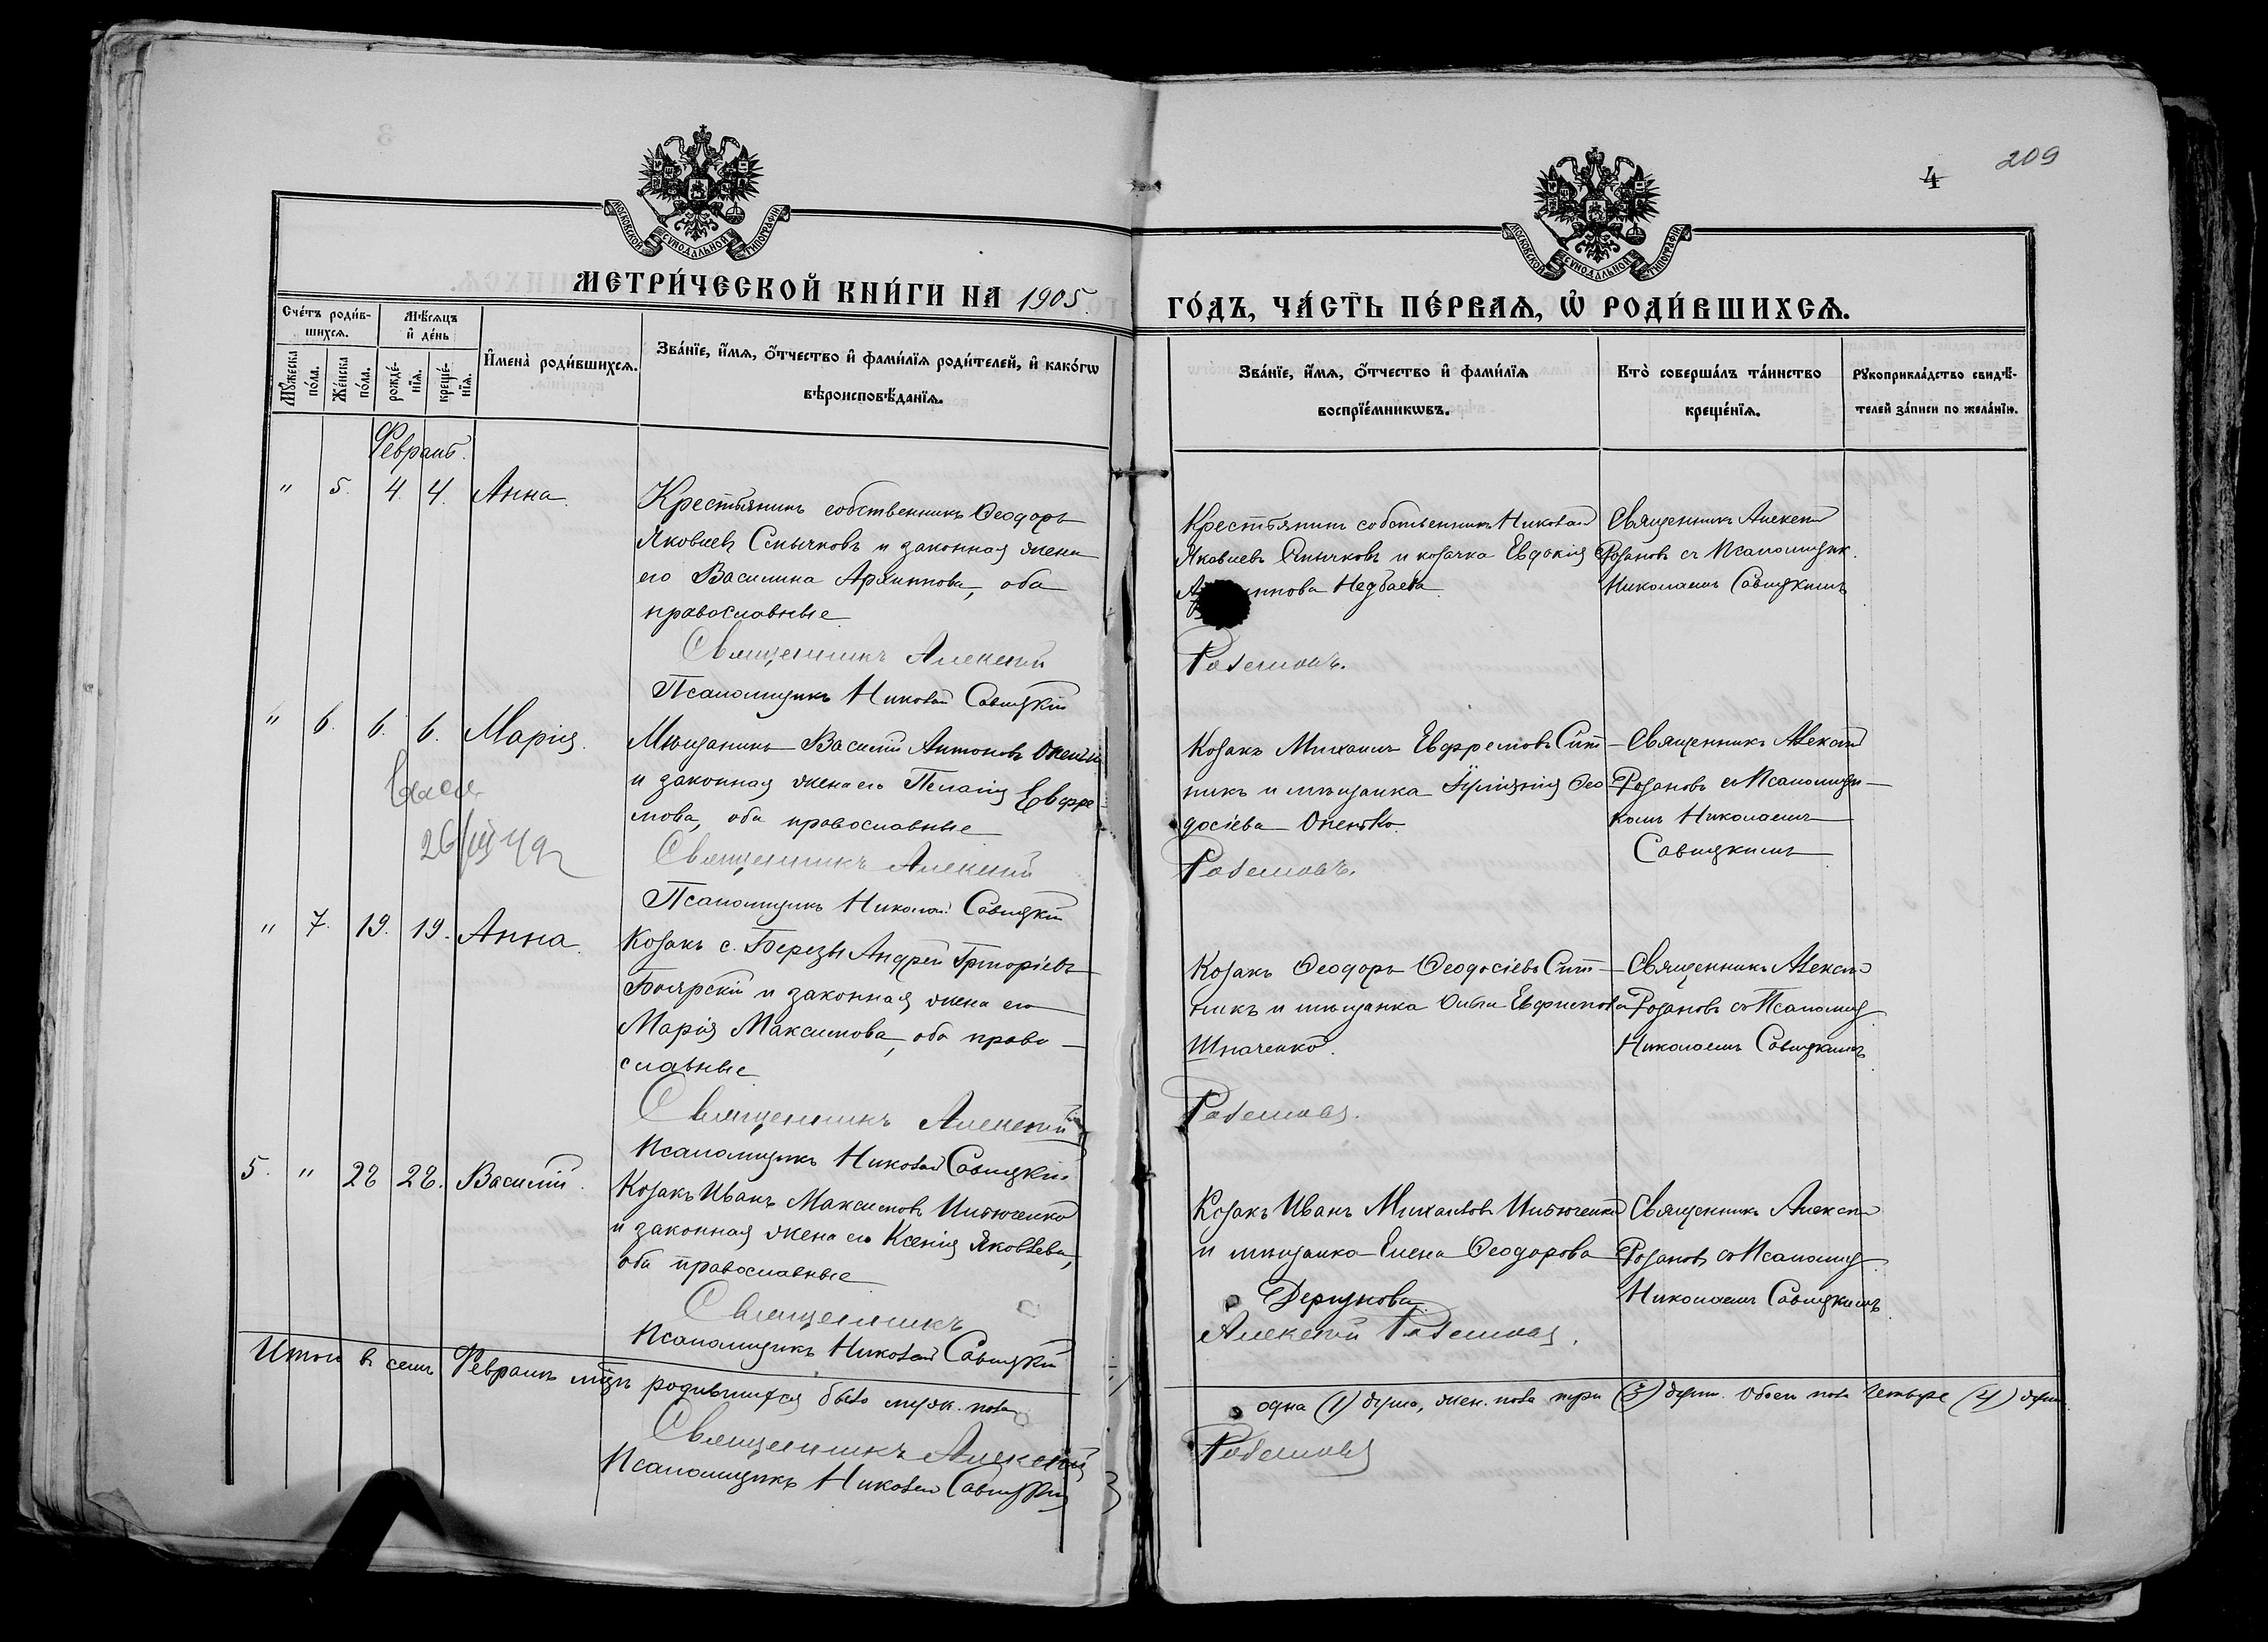 209
4
МОСКОВСКОЙ СѴНОДАЛЬНОЙ ТИПОГРАФІИ
МОСКОВСКОЙ СѴНОДАЛЬНОЙ ТИПОГРАФІИ
МЕТРИ́ЧЕСКОЙ КНИ́ГИ НА 1905.
ГО́ДЪ, ЧА́СТЬ ПЕ́РВАѦ, Ѡ҆ РОДИ́ВШИХСѦ.
Сче́тъ роди́в-
шихсѧ.
Мѣ́сѧцъ
и҆ де́нь
Мꙋ́жеска
по́ла.
Же́нска
по́ла.
рожде́-
нїѧ.
креще́-
нїѧ.
И҆мена̀ роди́вшихсѧ.
Зва́нїе, и҆́мѧ, ѻ҆́тчество и҆ фами́лїѧ роди́телей, и҆ како́гѡ
вѣроисповѣ́данїѧ.
Зва́нїе, и҆́мѧ, ѻ҆́тчество и҆ фами́лїѧ
воспрїе́мникѡвъ.
Кто̀ соверша́лъ та́инство
креще́нїѧ.
Рꙋкоприкла́дство свидѣ́-
телей за́писи по жела́нїю.
Февраль.
" 5. 4. 4. Анна.
Крестьянинъ собственникъ Ѳеодоръ
Яковлевъ Смычковъ и законная жена
его Василина Архиппова, оба
православные
Священникъ Алексій
Псаломщикъ Николай Савицкій
Крестьянинъ собственникъ Николай
Яковлевъ Смычковъ и козачка Евдокія
ппова Недбаева
Розановъ.
Священникъ Алексій
Розановъ съ Псаломщик.
Николаемъ Савицкимъ
" 6. 6. 6. Марія.
26/III 49
Мѣщанинъ Василій Антоновъ
и законная жена его Пелагія Евфре
мова, оба православные
Священникъ Алексій
Псаломщикъ Николай Савицкій
Козакъ Михаилъ Евфремовъ Сит-
никъ и мѣщанка Іуліанія Ѳео
досіева Опенько.
Розановъ.
Священникъ Алексій
Розановъ съ Псаломщи-
комъ Николаемъ
Савицкимъ
" 7. 19. 19. Анна.
Козакъ с. Березы Андрей Григоріевъ
Боярскій и законная жена его
Марія Максимова, оба право-
славные
Священникъ Алексій
Псаломщикъ Николай Савицкій
Козакъ Ѳеодоръ Ѳеодосіевъ Сит-
никъ и мѣщанка
Шпаченко.
Розановъ.
Священникъ Алексій
Розановъ съ Псаломщ
Николаемъ Савицкимъ
5. " 28 28. Василій.
Козакъ Иванъ Максимовъ Ильюченко
и законная жена его Ксенія Яковлева,
оба православные
Священникъ
Псаломщикъ Николай Савицкій
Козакъ Иванъ Михаиловъ Ильюченко
и мѣщанка Елена Ѳеодорова
Алексій Розановъ.
Священникъ Алексій
Розановъ съ Псаломщ
Николаемъ Савицкимъ
Итого въ семъ Февралѣ мцѣ родившихся было муж. пола
одна (1) душа, жен. пола три (3) душ. Обоего пола четыре (4) душ.
Священникъ Алексій
Розановъ
Псаломщикъ Николай Савицкій